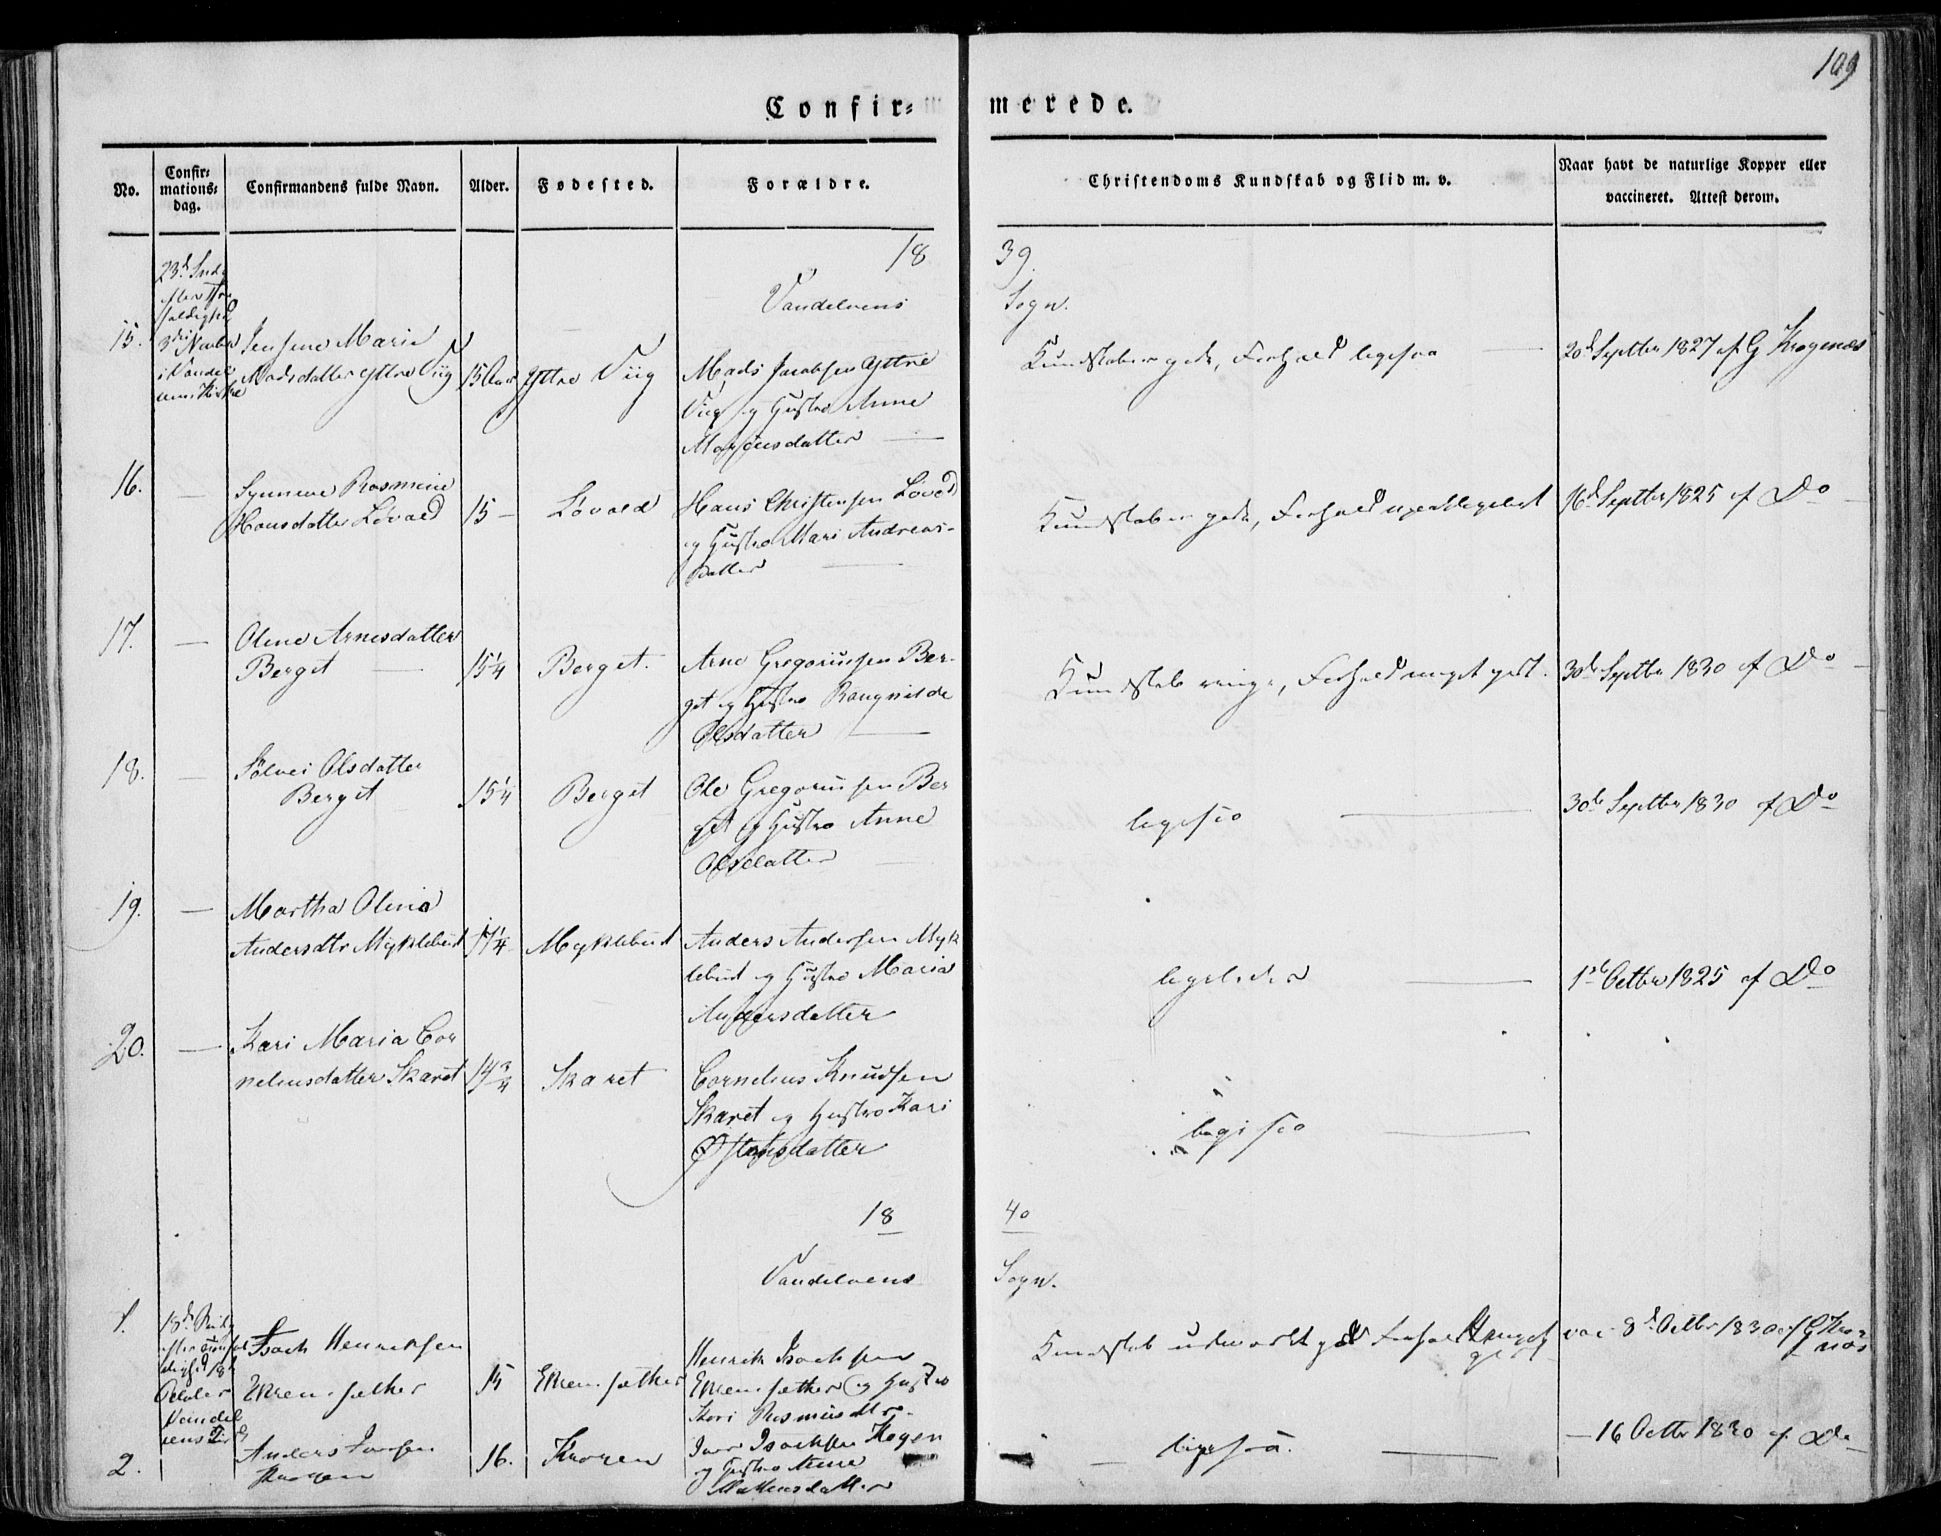 109
Confir=
merede.
No.
Confir=
mations=
dag.
Confirmandens fulde Navn.
Alder.
Fødested.
Forældre.
Christendoms Kundskab og Flid m. v.
Naar havt de naturlige Kopper eller
vaccineret. Attest derom.
18
39.
Vandelvens
Sogn.
15.
23de Sndg
efter Tre
foldighed
3die Novbr
i Vandel
vens Kirke
Jensine Marie
Madsdatter Yttre Viig
15 Aar
Yttre Viig
Mads Jacobsen Yttre
Viig og Hustro Anne
Mogensdatter
Kundskaber gode, Forhold ligesaa
20de Septbr 1827 af G Krogenæs
16.
—
Synneve Rasmine
Hansdatter Løvold
15 —
Løvold
Hans Christensen Løvold
og Hustro Mari Andreas-
datter
Kundskaber gode, Forhold upaaklageligt
16de Septbr 1825 af Do
17.
—
Oline Arnesdatter
Berget
15 1/4
Berget.
Arne Gregoriussen Ber-
get og Hustro Rangnilde
Olsdatter
Kundskab ringe, Forhold meget godt.
30de Septbr 1830 af Do
18.
—
Sølvei Olsdatter
Berget
15 1/4
Berget
Ole Gregoriussen Ber
get og Hustro Anne
Olsdatter
ligesaa
30de Septbr 1830 af Do
19.
—
Martha Olina
Andersdtr Myklebust
17 1/4
Myklebust
Anders Andersen Myk
lebust og Hustro Maria
Andersdatter
ligeledes
1ste Octbr 1825 af Do
20.
—
Kari Maria Cor
neliusdatter Skaret
14 3/4
Skaret
Cornelius Knudsen
Skaret og Hustro Kari
Østensdatter
ligesaa
18
40
Vandelvens
Sogn.
1.
18de
Isach Henriksen
Ekremsæther
15
Ekremsæther
Henrik Isachsen
Ekremsæther og Hustro
Kari Rasmusdtr.
Kundskab udmærket god Forhold meget
godt
vac. 8de Octbr 1830 af G Kro=
næs
2.
Anders Ivarsen
Krogen
16.
Krogen
Iver Isachsen Kogen
og Hustro Anne
ligesaa.
— 16 Octbr 1830 af Do